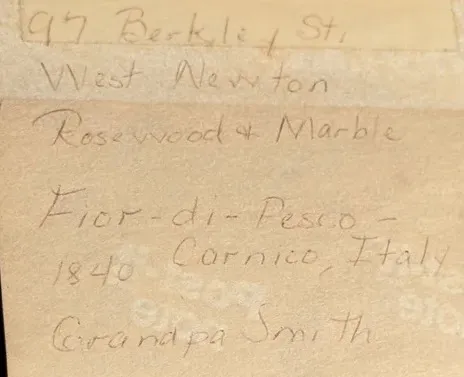 97 Berkley St.
West Newton
Rosewood & Marble
Fior-di-Pesco-
1840 Carnico, Italy
Grandpa Smith